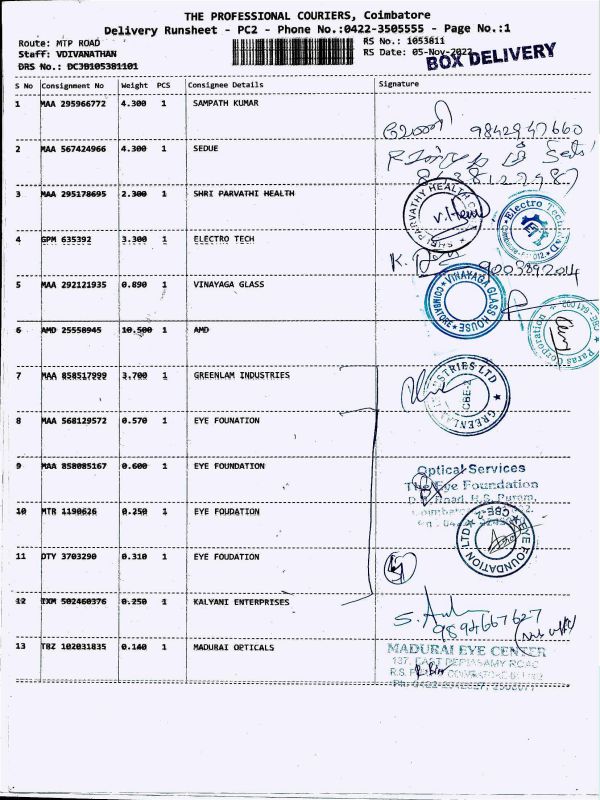 THE PROFESSIONAL COURIERS, Coimbatore
Delivery Runsheet - PC2 - Phone No.:0422-3505555 - Page No.:1
Route: MTP ROAD
RS No.: 1053811
Staff: VDIVANATHAN
RS Date: 05-Nov-2022
BOX DELIVERY
DRS No.: DCJB105381101
S No Consignment No Weight PCS Consignee Details Signature
1 MAA 295966772 4.300 1 SAMPATH KUMAR
9842947660
2 MAA 567424966 4.300 1 SEDUE
3 MAA 295178695 2.300 1 SHRI PARVATHI HEALTH
SHRI PARVATHY HEALTH
Electro Tech
4 GPM 635392 3.300 1 ELECTRO TECH
9003892014
5 MAA 292121935 0.890 1 VINAYAGA GLASS
VINAYAGA GLASS HOUSE COIMBATORE
6 AMD 25558945 10.500 1 AMD
Paras Corporation
7 MAA 858517999 3.700 1 GREENLAM INDUSTRIES
GREENLAM INDUSTRIES LTD CBE-2
8 MAA 568129572 0.570 1 EYE FOUNATION
9 MAA 858085167 0.600 1 EYE FOUNDATION
Optical Services
The Eye Foundation
D.B. Road, R.S. Puram,
10 MTR 1190626 0.250 1 EYE FOUDATION
EYE FOUNDATION LTD CBE-2
11 DTY 3703290 0.310 1 EYE FOUDATION
12 TXM 502460376 0.250 1 KALYANI ENTERPRISES
9894667627
13 TBZ 102031835 0.140 1 MADURAI OPTICALS
MADURAI EYE CENTER
137, EAST PERIASAMY ROAD